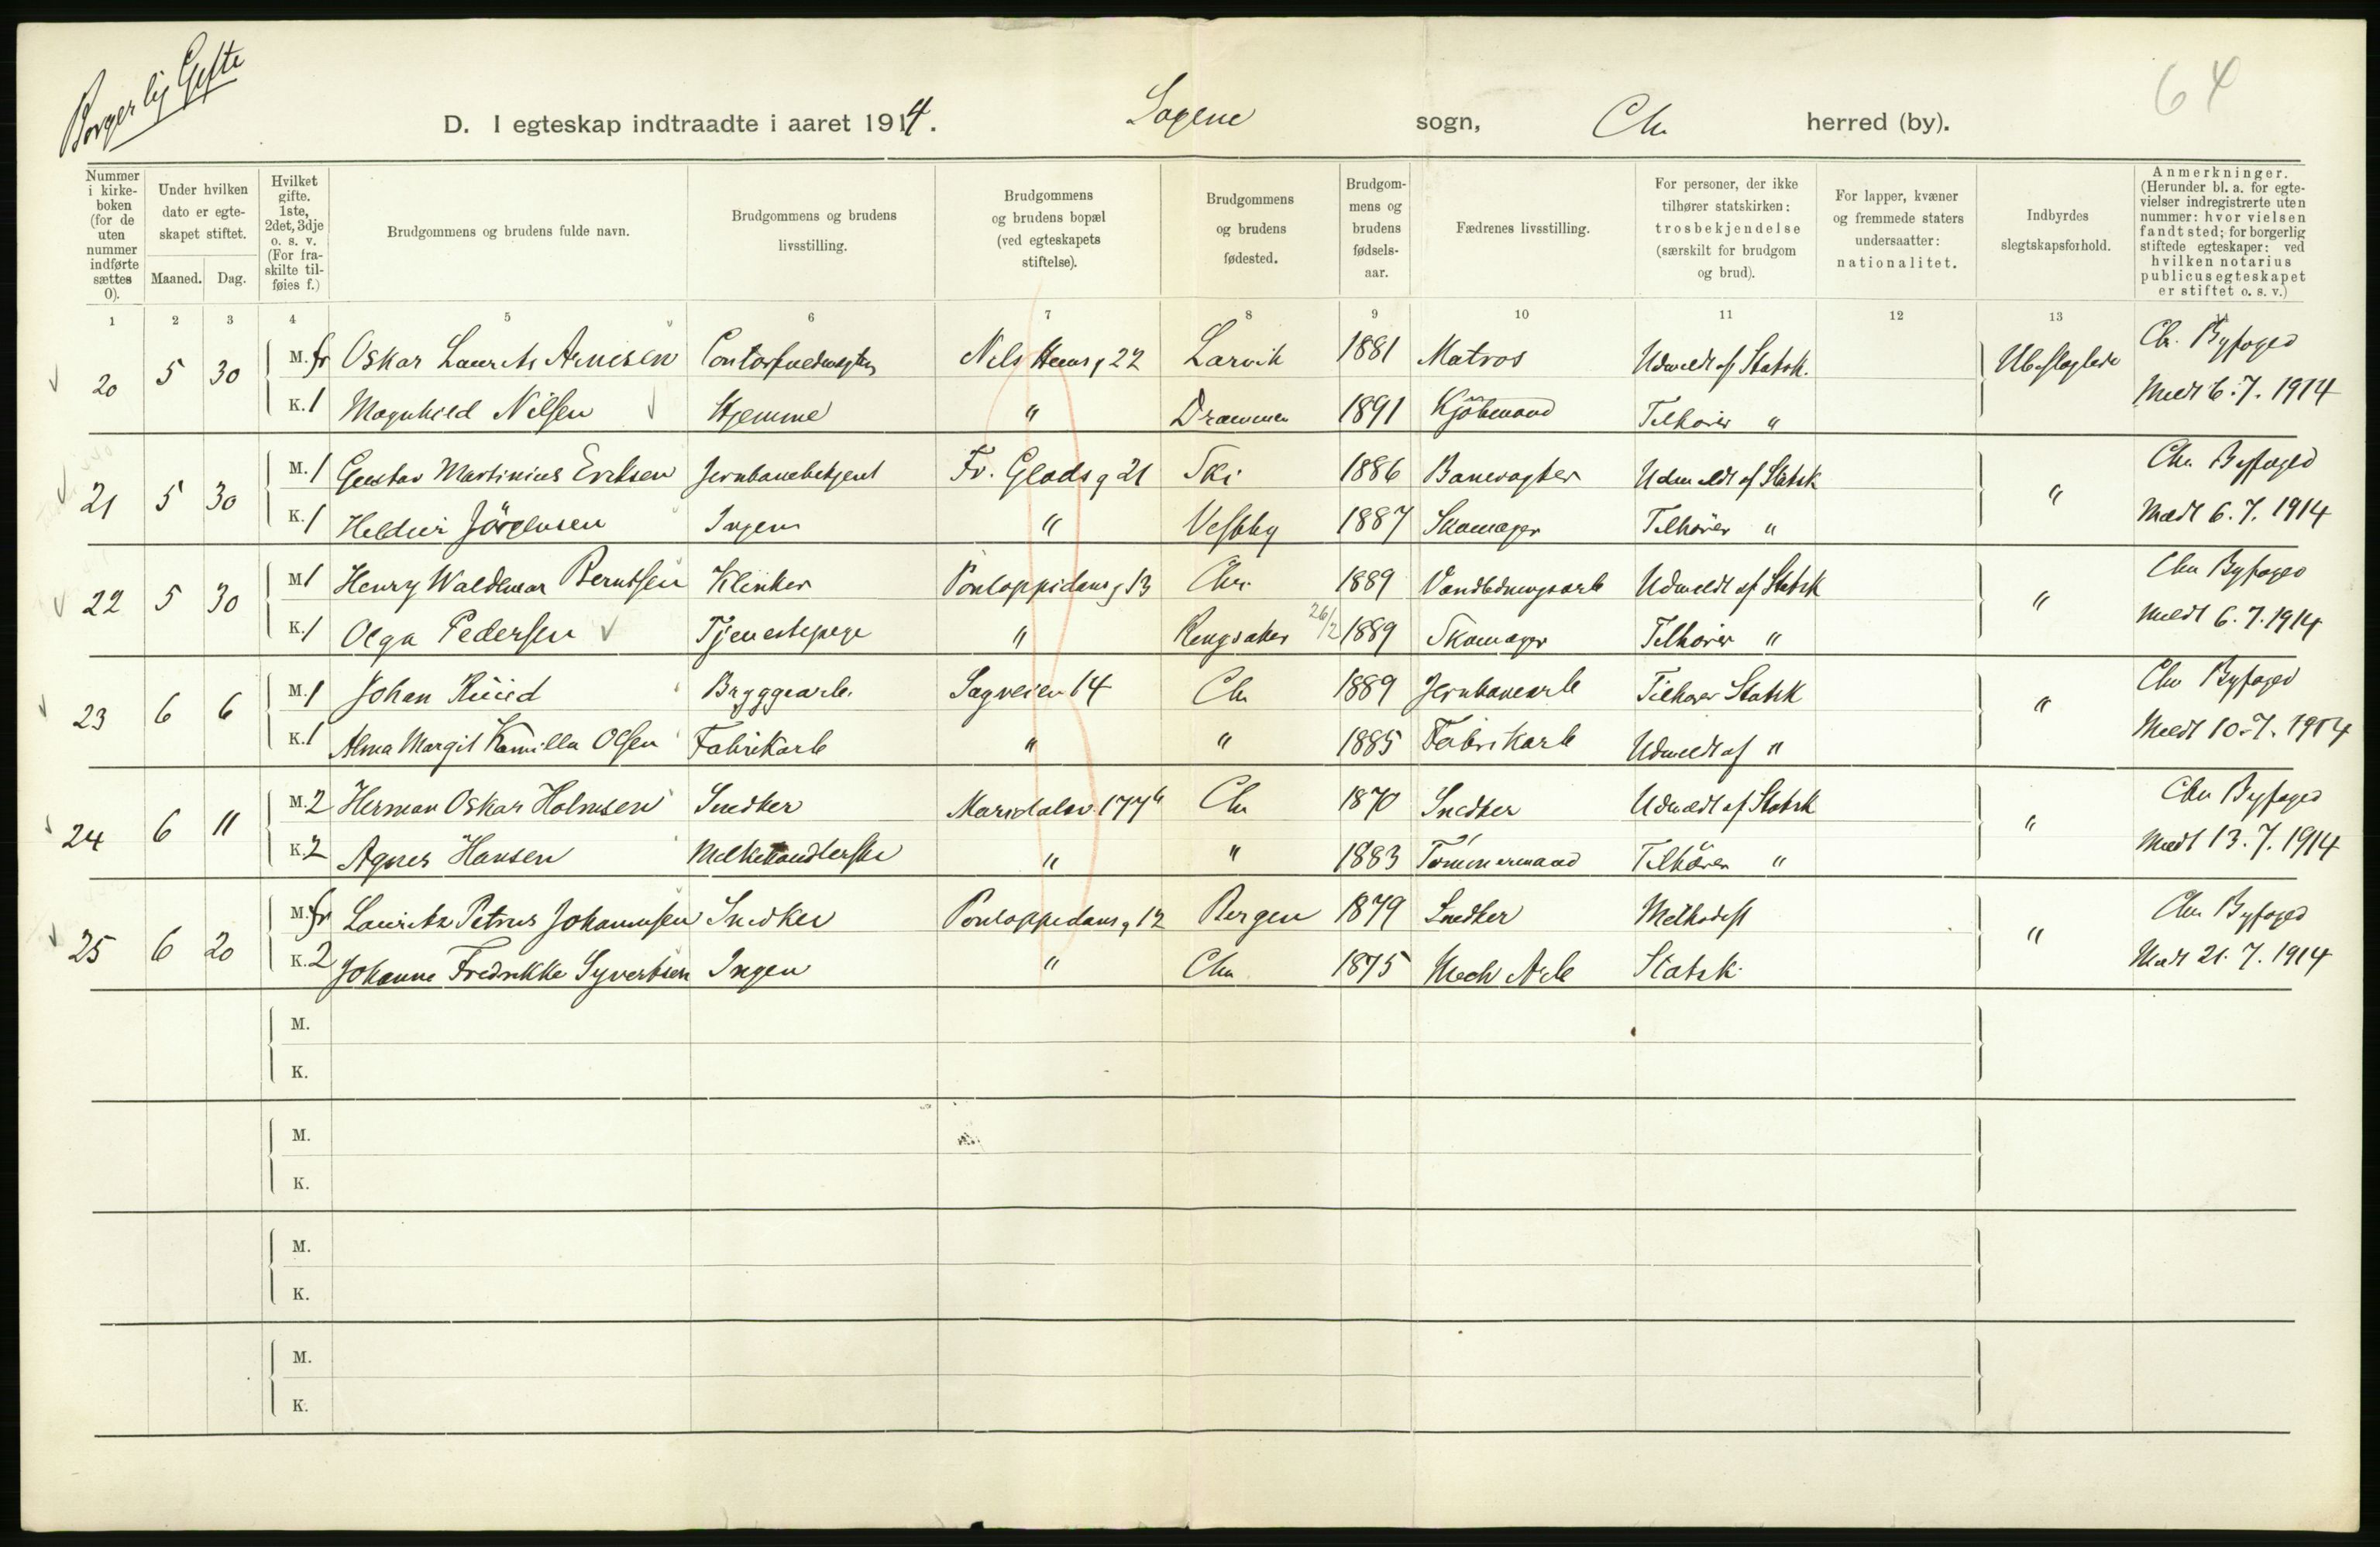 Borgerlig Gifte
64
D. I egteskap indtraadte i aaret 1914. Sagene sogn, Chr. herred (by).
Nummer i kirkeboken (for de uten nummer indførte sættes 0).
Under hvilken dato er egteskapet stiftet.
Maaned. Dag.
Hvilket gifte. 1ste, 2det, 3dje o. s. v. (For fraskilte tilføies f.)
Brudgommens og brudens fulde navn.
Brudgommens og brudens livsstilling.
Brudgommens og brudens bopæl (ved egteskapets stiftelse).
Brudgommens og brudens fødested.
Brudgommens og brudens fødselsaar.
Fædrenes livsstilling.
For personer, der ikke tilhører statskirken: trosbekjendelse (særskilt for brudgom og brud).
For lapper, kvæner og fremmede staters undersaatter: nationalitet.
Indbyrdes slegtskapsforhold.
Anmerkninger. (Herunder bl. a. for egtevielser indregistrerte uten nummer: hvor vielsen fandt sted; for borgerlig stiftede egteskaper: ved hvilken notarius publicus egteskapet er stiftet o. s. v.)
1 2 3 4 5 6 7 8 9 10 11 12 13 14
20 5 30 M. fr Oskar Laurits Arnesen Contorfuldmægtig Nels Huus g 22 Larvik 1881 Matros Udmeldt af Statsk. Ubeslægtede Chr. Byfoged
K. 1 Magnhild Nilsen Hjemme " Drammen 1891 Kjöbmand Tilhører " Meldt 6.7.1914
21 5 30 M. 1 Gustav Martinius Eriksen Jernbanebetjent Fr. Glads g 21 Ski 1886 Banevogter Udmeldt af Statsk " Chr. Byfoged
K. 1 Jörgensen Ingen " Vestby 1887 Skomager Tilhører " Meldt 6.7.1914
22 5 30 M. 1 Henry Waldemar Berntsen Klinker Pontoppidans g 13 Chr. 1889 Vandledningsarb Udmeldt af Statsk " Chr Byfoged
K. 1 Olga Pedersen Tjenestepige " Ringsaker 26/2 1889 Skomager Tilhører " Meldt 6.7.1914
23 6 6 M. 1 Johan Ruud Bryggearb. Sagveien 14 Chr 1889 Jernbanearb Tilhører Statsk " Chr Byfoged
K. 1 Alma Margit Kamilla Olsen Fabrikarb " " 1885 Fabrikarb Udmeldt af " Meldt 10.7.1914
24 6 11 M. 2 Herman Oskar Holmsen Snedker Maridalsv. 177 Chr 1870 Snedker Udmeldt af Statsk " Chr Byfoged
K. 2 Agnes Hansen Melkehandlerske " " 1883 Tömmermand Tilhører " Meldt 13.7.1914
25 6 20 M. fr Lauritz Petrus Johannesen Snedker Pontoppidans g 12 Bergen 1879 Snedker Methodist " Chr Byfoged
K. 2 Johanne Fredrikke Syvertsen Ingen " Chr 1875 Mech Arb Statsk. Meldt 21.7.1914
M.
K.
M.
K.
M.
K.
M.
K.